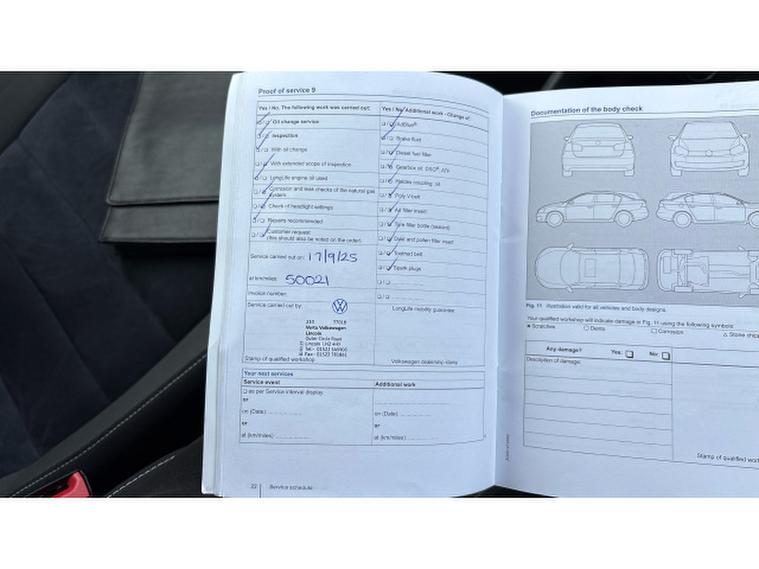 Proof of service 9
Yes / No. The following work was carried out:
Oil change service
Inspection
With oil change
With extended scope of inspection
LongLife engine oil used
Corrosion and leak checks of the natural gas system
Check of headlight settings
Repairs recommended
Customer request
(this should also be noted on the order)
Service carried out on: 17/9/25
at km/miles: 50021
Invoice number:
Service carried out by:
Volkswagen
Outer Circle Road
Lincoln LN2 4HY
Stamp of qualified workshop
Yes / No. Additional work - Change of:
AdBlue®
Brake fluid
Diesel fuel filter
Gearbox oil DSG®, ATF
Haldex coupling oil
Poly V-belt
Air filter insert
Tyre filler bottle (sealant)
Dust and pollen filter insert
Toothed belt
Spark plugs
LongLife mobility guarantee
Volkswagen dealership items
Your next services
Service event
Additional work
as per Service interval display
or
on (Date)
or
at (km/miles)
on (Date)
or
at (km/miles)
22 Service schedule
Documentation of the body check
Fig. 11 Illustration valid for all vehicles and body designs.
Your qualified workshop will indicate damage in Fig. 11 using the following symbols:
Scratches
Dents
Corrosion
Stone chips
Any damage?
Yes:
No:
Description of damage:
Stamp of qualified